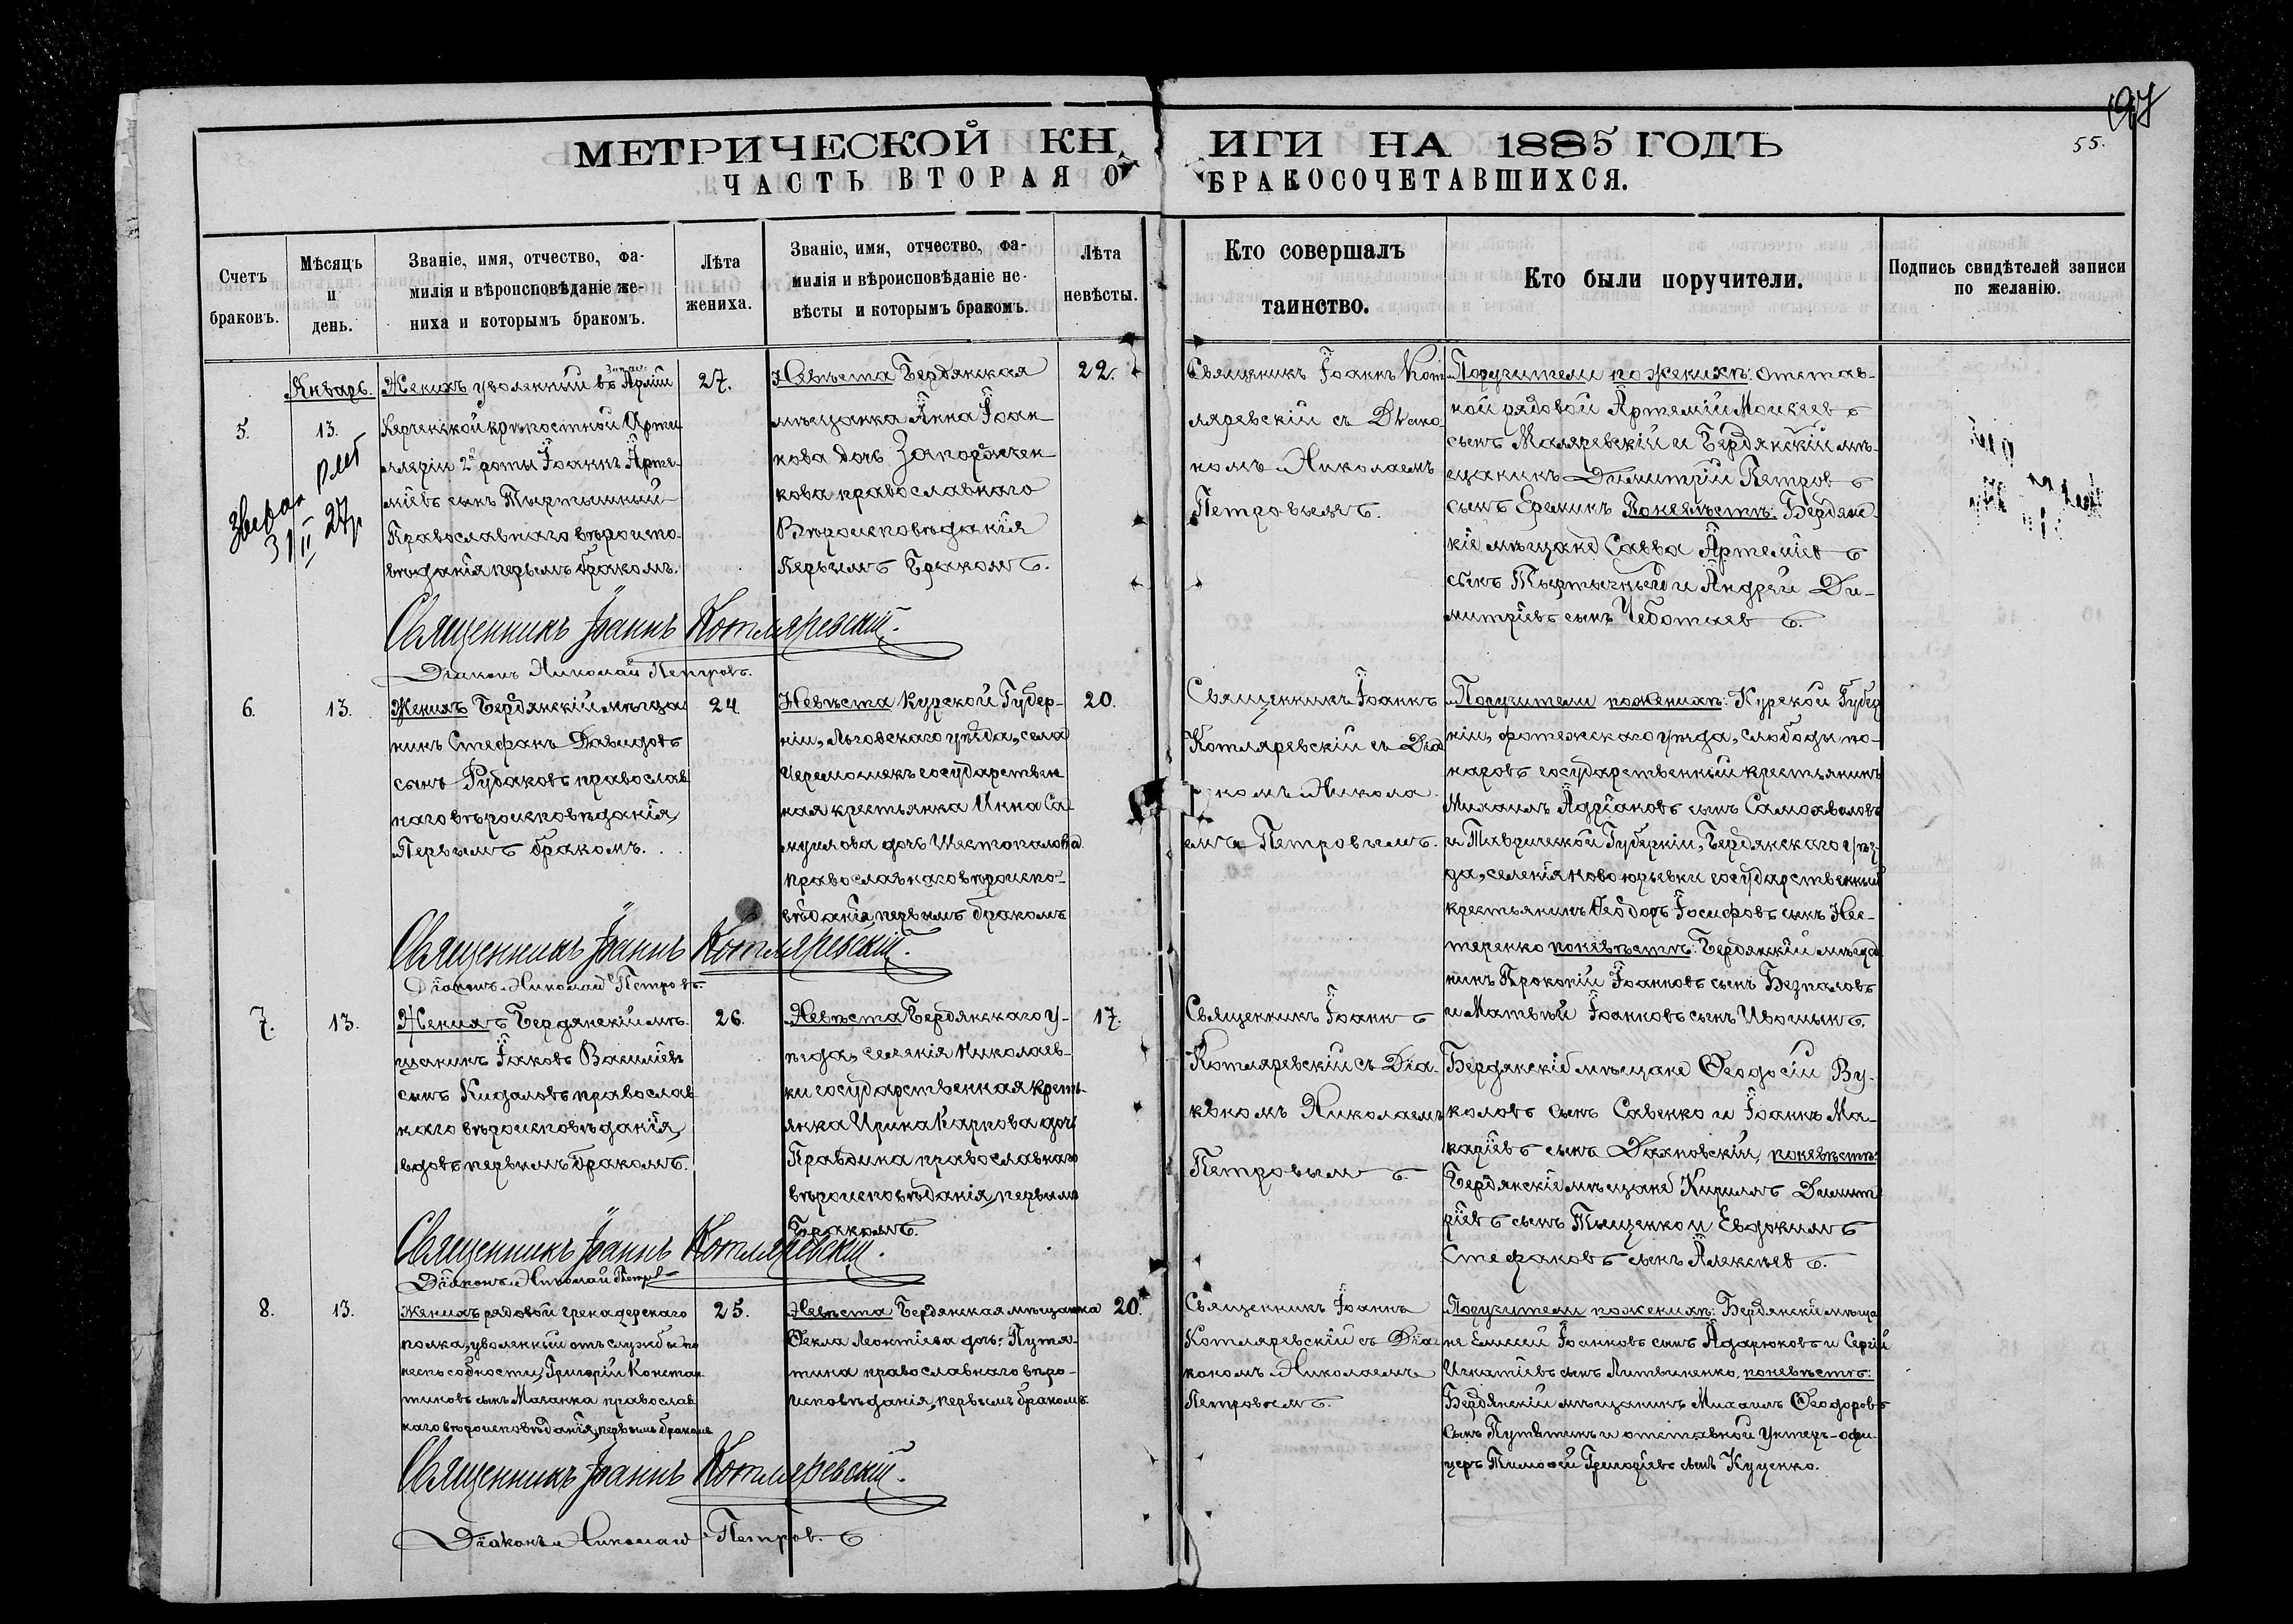 97
55.
МЕТРИЧЕСКОЙ КНИГИ НА 1885 ГОДЪ
ЧАСТЬ ВТОРАЯ О БРАКОСОЧЕТАВШИХСЯ.
Счетъ браковъ.
Мѣсяцъ и день.
Званіе, имя, отчество, фа-
милія и вѣроисповѣданіе же-
ниха и которымъ бракомъ.
Лѣта жениха.
Званіе, имя, отчество, фа-
милія и вѣроисповѣданіе не-
вѣсты и которымъ бракомъ.
Лѣта невѣсты.
Кто совершалъ
таинство.
Кто были поручители.
Подпись свидѣтелей записи
по желанію.
5.
Январь.
13.
Женихъ уволенный въ запас. Арміи
Керченской крѣпостной Арти
ллеріи 2й роты Іоаннъ Арте-
міевъ сынъ Тыртышный
Православнаго вѣроиспо-
вѣданія первымъ бракомъ.
27.
Невѣста Бердянская
мѣщанка Анна Іоан-
нова дочь Запорожчен-
кова православнаго
Вѣроисповѣданія
Первымъ Бракомъ.
22.
Священникъ Іоаннъ Кот
ляревскій съ Діако-
номъ Николаемъ
Петровымъ.
Поручители по женихѣ: отстав-
ной рядовой Артемій Моисеевъ
сынъ Маляревскій и Бердянскій мѣ-
щанинъ Димитрій Петровъ
сынъ Ереминъ По невѣстѣ: Бердянс-
кіе мѣщане Савва Артеміевъ
сынъ Тыртычный и Андрей Ди-
митріевъ сынъ Чеботаевъ.
Священникъ Іоаннъ Котляревскій.
Діаконъ Николай Петровъ.
6.
13.
Женихъ Бердянскій мѣща
нинъ Стефанъ Давидовъ
сынъ Рудаковъ православ
наго вѣроисповѣданія,
Первымъ бракомъ.
24
Невѣста Курской Губер-
ніи, Льговскаго уѣзда, села
Черемошекъ государствен
ная крестьянка Анна Са-
муилова дочь Шестопалова
православнаго вѣроиспо-
вѣданія, первымъ бракомъ
20.
Священникъ Іоаннъ
Котляревскій съ Діа
кономъ Никола
емъ Петровымъ.
Поручители по женихѣ: Курской Губер
ніи, фотежскаго уѣзда, слободы по-
наровъ государственный крестьянинъ
Михаилъ Адріановъ сынъ Самохваловъ
и Таврической Губерніи, Бердянскаго уѣз-
да, селенія Новоюрьевки государственный
крестьянинъ Ѳеодоръ Іосифовъ сынъ Нес-
теренко по невѣстѣ: Бердянскій мѣща
нинъ Прокопій Іоанновъ сынъ Безпаловъ
и Матвѣй Іоанновъ сынъ Ивошинъ.
Священникъ Іоаннъ Котляревскій.
Діаконъ Николай Петровъ.
7.
13.
Женихъ Бердянскій мѣ-
щанинъ Іаковъ Василіевъ
сынъ Кидаловъ православ
наго вѣроисповѣданія,
вдовъ первымъ бракомъ.
26.
Невѣста Бердянскаго у-
ѣзда, селенія Николаев-
ки государственная кресть-
янка Ирина Карпова дочь
Правдина православнаго
вѣроисповѣданія, первымъ
Бракомъ.
17.
Священникъ Іоаннъ
Котляревскій съ Діа-
кономъ Николаемъ
Петровымъ.
Бердянскіе мѣщане Ѳеодосій Ву-
коловъ сынъ Савенко и Іоаннъ Ма-
каріевъ сынъ Дахновскій, по невѣстѣ:
Бердянскіе мѣщане Кириллъ Димит
ріевъ сынъ Тыщенко и Евдокимъ
Стефановъ сынъ Алексѣевъ.
Священникъ Іоаннъ Котляревскій.
Діаконъ Николай Петровъ
8.
13.
Женихъ рядовой гренадерскаго
полка, уволенный отъ службы по
неспособности, Григорій Констан
тиновъ сынъ Мазанка православ
наго вѣроисповѣданія, первымъ бракомъ
25.
Невѣста Бердянская мѣщанка
Ѳекла Леонтіева дочь Путя-
тина православнаго вѣро-
исповѣданія, первымъ бракомъ.
20.
Священникъ Іоаннъ
Котляревскій съ Діа-
кономъ Николаемъ
Петровымъ.
Поручители по женихѣ: Бердянскіе мѣща
не Елисей Іоанновъ сынъ Адарюковъ и Сергій
Игнатіевъ сынъ Литвиненко, по невѣстѣ:
Бердянскій мѣщанинъ Михаилъ Ѳеодоровъ
сынъ Путятинъ и отставной Унтеръ-офи-
церъ Тимофей Григоріевъ сынъ Куценко.
Священникъ Іоаннъ Котляревскій.
Діаконъ Николай Петровъ.